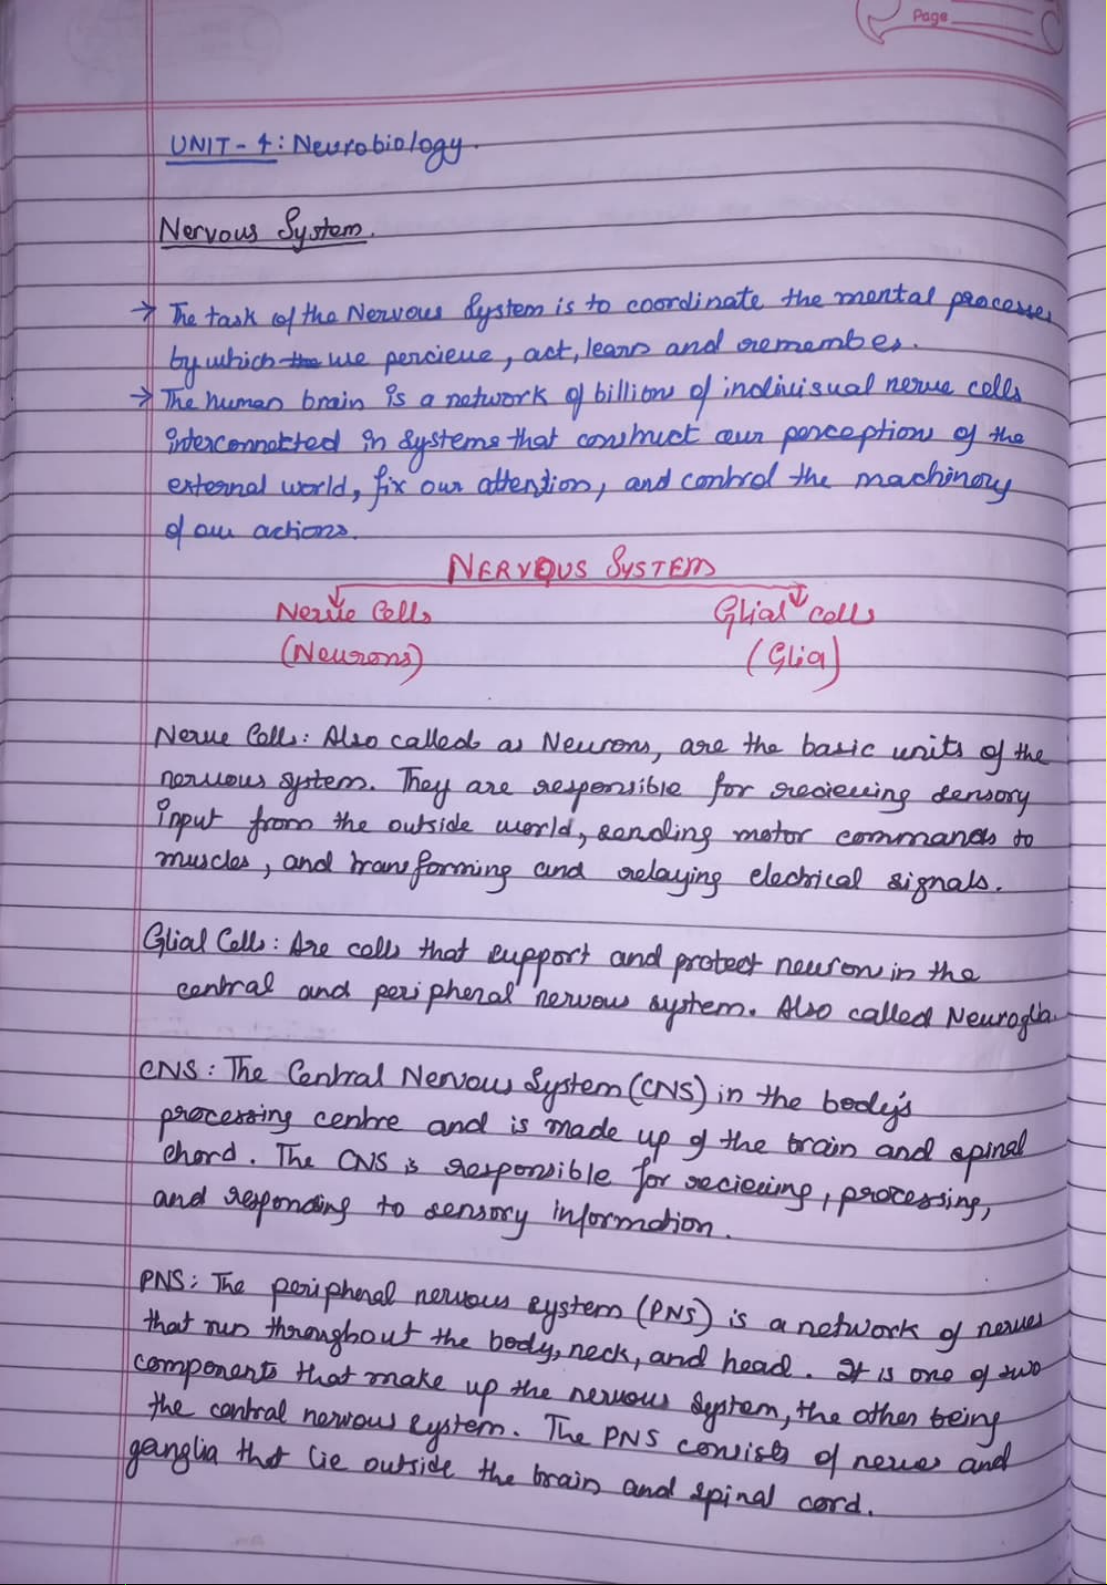 Page
UNIT - 4 : Neurobiology.
Nervous System.
→ The task of the Nervous System is to coordinate the mental processes
by which the we percieve, act, learn and remember.
→ The human brain is a network of billions of indiviisual nerve cells
interconnected in systems that construct our perceptions of the
external world, fix our attention, and control the machinery
of our actions.
NERVOUS SYSTEM
Nerve Cells Glial cells
(Neurons) (Glia)
Nerve Cells: Also called as Neurons, are the basic units of the
nervous system. They are responsible for recieving sensory
input from the outside world, sending motor commands to
muscles, and transforming and relaying electrical signals.
Glial Cells: Are cells that support and protect neurons in the
central and peripheral nervous system. Also called Neuroglia.
CNS: The Central Nervous System (CNS) in the body's
processing centre and is made up of the brain and spinal
chord. The CNS is responsible for recieving, processing,
and responding to sensory information.
PNS: The peripheral nervous system (PNS) is a network of nerves
that run throughout the body, neck, and head. It is one of two
components that make up the nervous system, the other being
the central nervous system. The PNS consists of nerves and
ganglia that lie outside the brain and spinal cord.